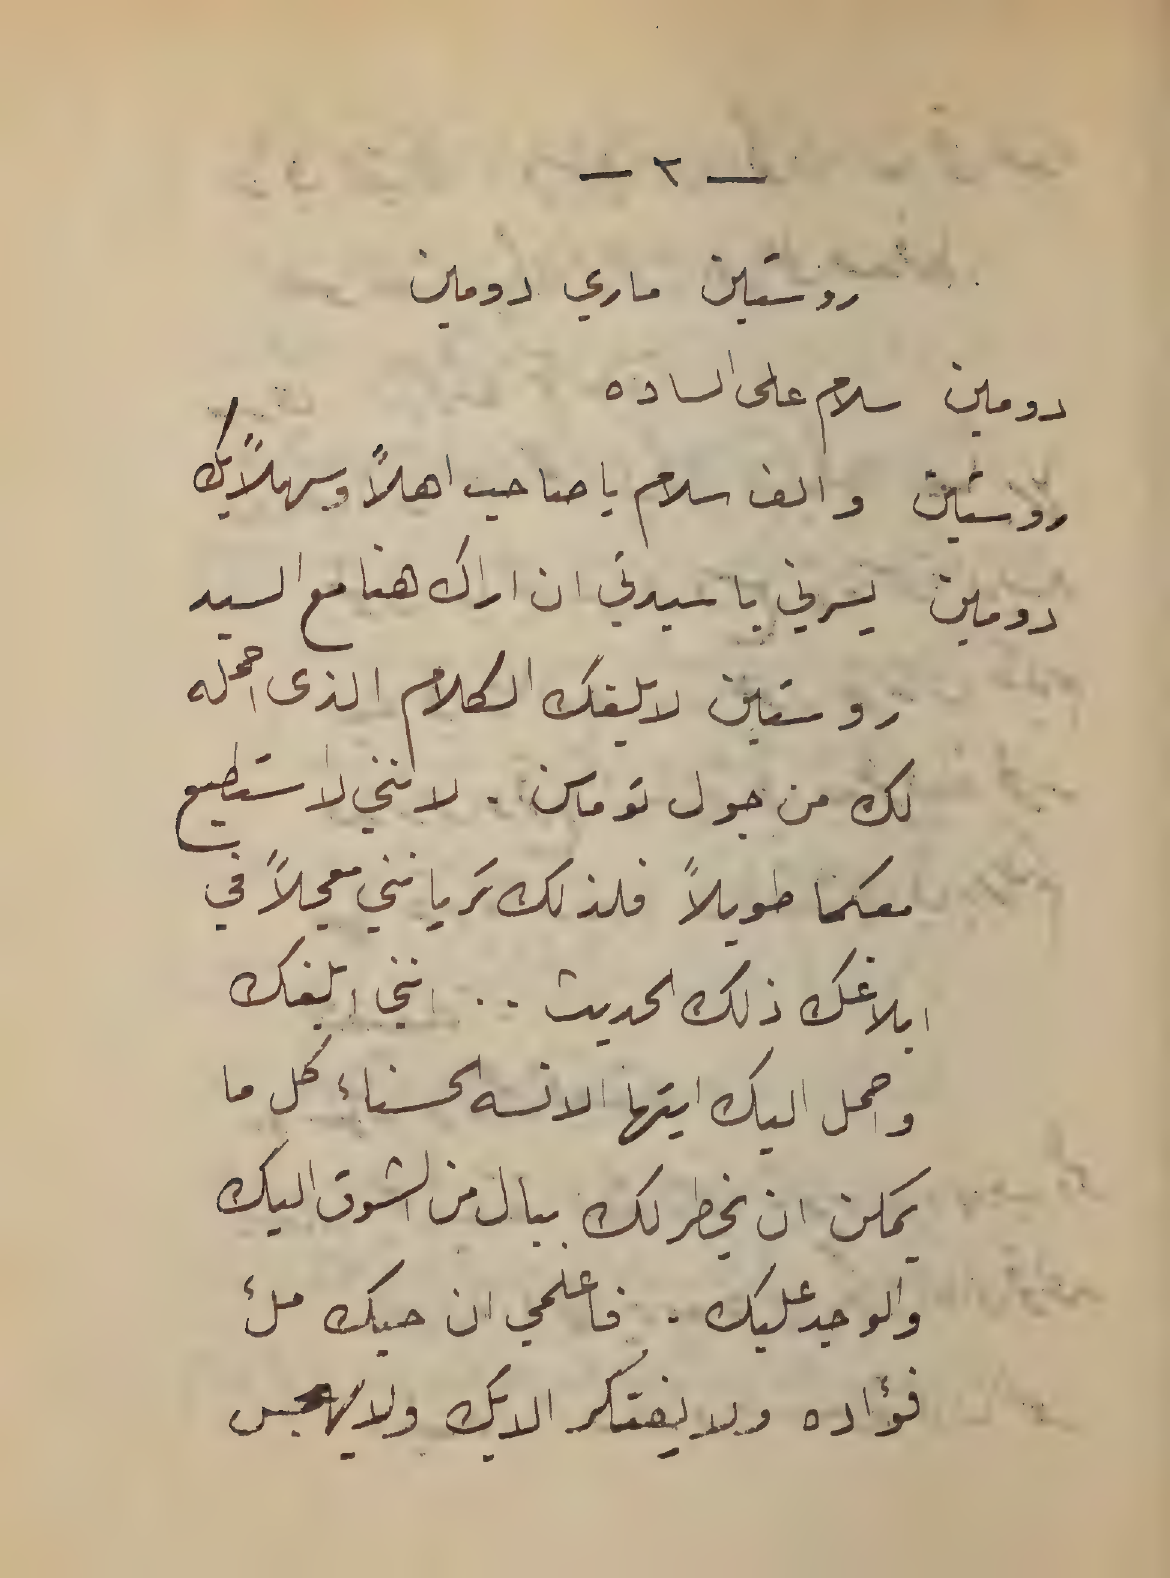 — ٢ —
روستين ماري دومين
دومين سلام على الساده
روستين والف سلام يا صاحب اهلاً وسهلاً بك
دومين يسرني يا سيدتي ان اراك هنا مع السيد
روستين لابلغك الكلام الذى احمله
لك من جول توماس . لانني لا استطيع
معكما طويلاً فلذلك تريانني معجلاً في
ابلاغك ذلك الحديث .. انني ابلغك
واحمل اليك ايتها الانسه الحسناء كل ما
يمكن ان يخطر لك ببال من الشوق اليك
والوجد عليك . فاعلمي ان حبك ملئ
فؤاده ولا يفتكر الا بك ولا يهجس